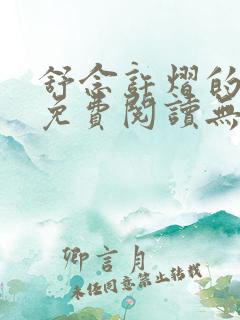 舒念許熠的
免費閱讀無
卿言月
未经同意禁止转载